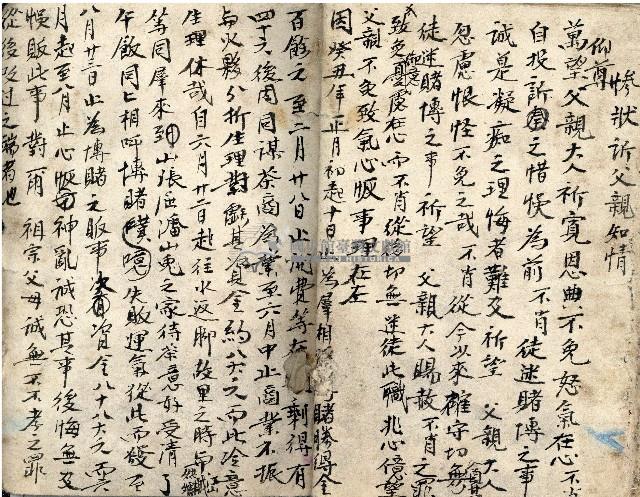 慘狀訴父親知情
仰尊
萬望父親大人祈寬恩典不免怒氣在心不
自投訴之惜悞為前不肖徒迷賭博之事
誠是凝痴之理悔者難及祈望 父親大人
怱慮恨怪不免之哉 不肖從今以來確守切無
徒迷賭博之事 祈望 父親大人賜赦不肖之罪
致多憂慮在心而不肖從後切無迷徒此職兆心億望
父親不免致氣心恨事罪在左
因癸丑年正月初起十日 為羣相 賭勝得金
百餘元 至二月廿八日止開費等在 剩得有
四十六後因同謀茶商營業至六月中止商業不振
与火夥分折生理對虧甚 金約八大元而此冷意
生理休哉自六月廿二日赴往水返脚故里之時
等同犀來到山張 潘山兎之家待茶意好受清了
午飯同上相呼博賭 失敗運氣從此而殺至
八月廿三日止為博賭之敗事 資金八十八大元而
月起至八月止心恨神亂誠恐其事後悔無及
悞敗此事對爾 祖宗父母誠無不不孝之罪
從後改过之端者也